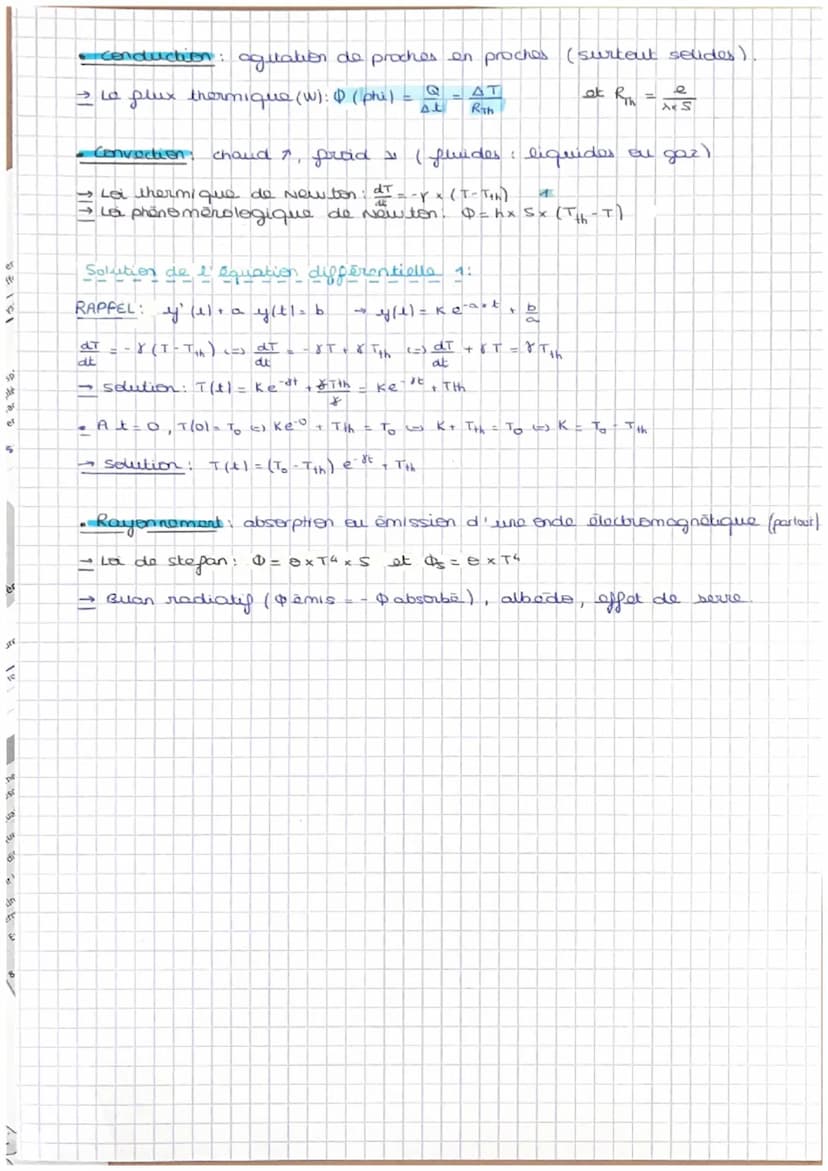 • Conduction : agitation de proches en proches (surtout solides).
→ Le flux thermique (W) : Φ (phi) = Q/Δt = ΔT/RTh et RTh = e/λ×S
• Convection : chaud ↗, froid ↘ (fluides : liquides ou gaz)
→ Loi thermique de Newton : dT/dt = -γ × (T - Tth) 1
→ Loi phénomènologique de Newton : Φ = h × S × (Tth - T)
Solution de l'équation différentielle 1 :
RAPPEL : y'(t) + a y(t) = b → y(t) = K e^-a×t + b/a
dT/dt = -γ (T - Tth) <=> dT/dt = -γT + γTth <=> dT/dt + γT = γTth
→ solution : T(t) = Ke^-γt + γTth/γ = Ke^-γt + Tth
• A t = 0, T(0) = T0 <=> Ke^-0 + Tth = T0 <=> K + Tth = T0 <=> K = T0 - Tth
→ solution : T(t) = (T0 - Tth) e^-γt + Tth
• Rayonnement : absorption ou émission d'une onde électromagnétique (partout)
→ Loi de stefan : Φ = θ × T^4 × S et Φs = θ × T^4
→ Bilan radiatif (Φ émis = - Φ absorbé), albédo, effet de serre.